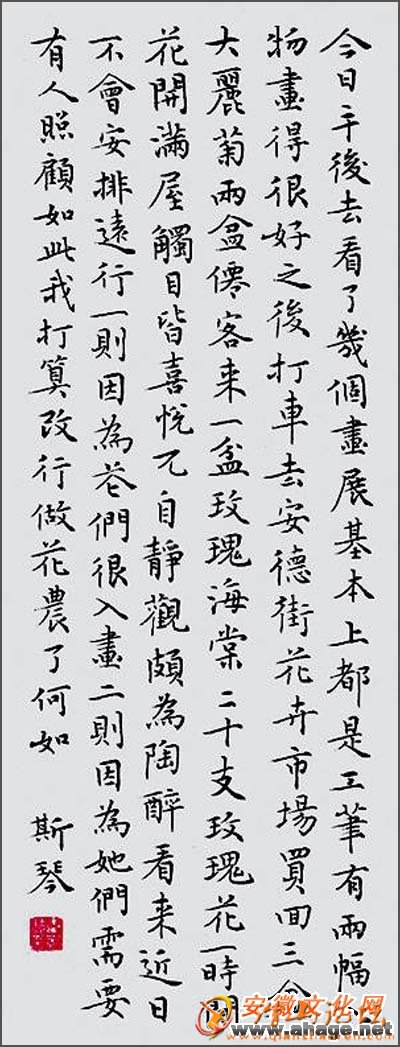 今日午後去看了幾個畫展基本上都是工筆有兩幅
物畫得很好之後打車去安德街花卉市場買回三盆
大麗菊兩盆僊客来一盆玫瑰海棠二十支玫瑰花一時間
花開滿屋觸目皆喜悅兀自靜觀頗為陶醉看来近日
不會安排遠行一則因為花們很入畫二則因為她們需要
有人照顧如此我打算改行做花農了何如
斯琴
安徽文化网
www.ahage.net